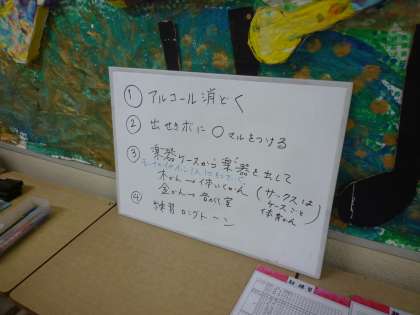 ① アルコール消どく
② 出せきボに○マルをつける
③ 楽器ケースから楽器を出して
木かん→体いくかん (サックスは
ケースごと
金かん→音がく室
体育かん)
④ 練習 ロングトーン